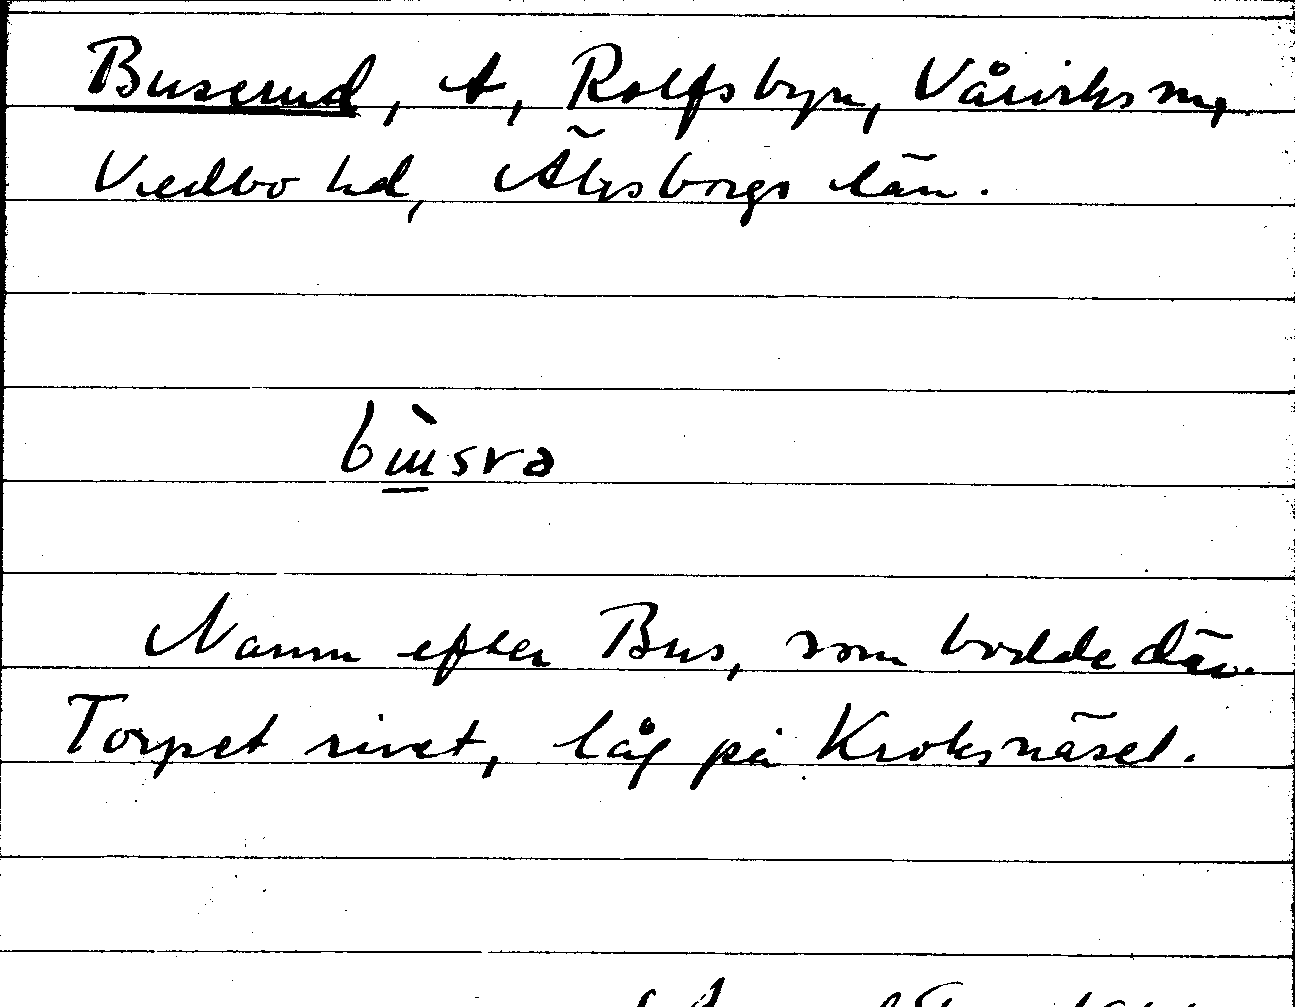 Buserud, A, Rolfsbyn, Vårviks sn,
Vedbo hd, Älvsborgs län.
bù̲sra
Namn efter Bus, som bodde där.
Torpet rivet, låg på Kroksnäset.